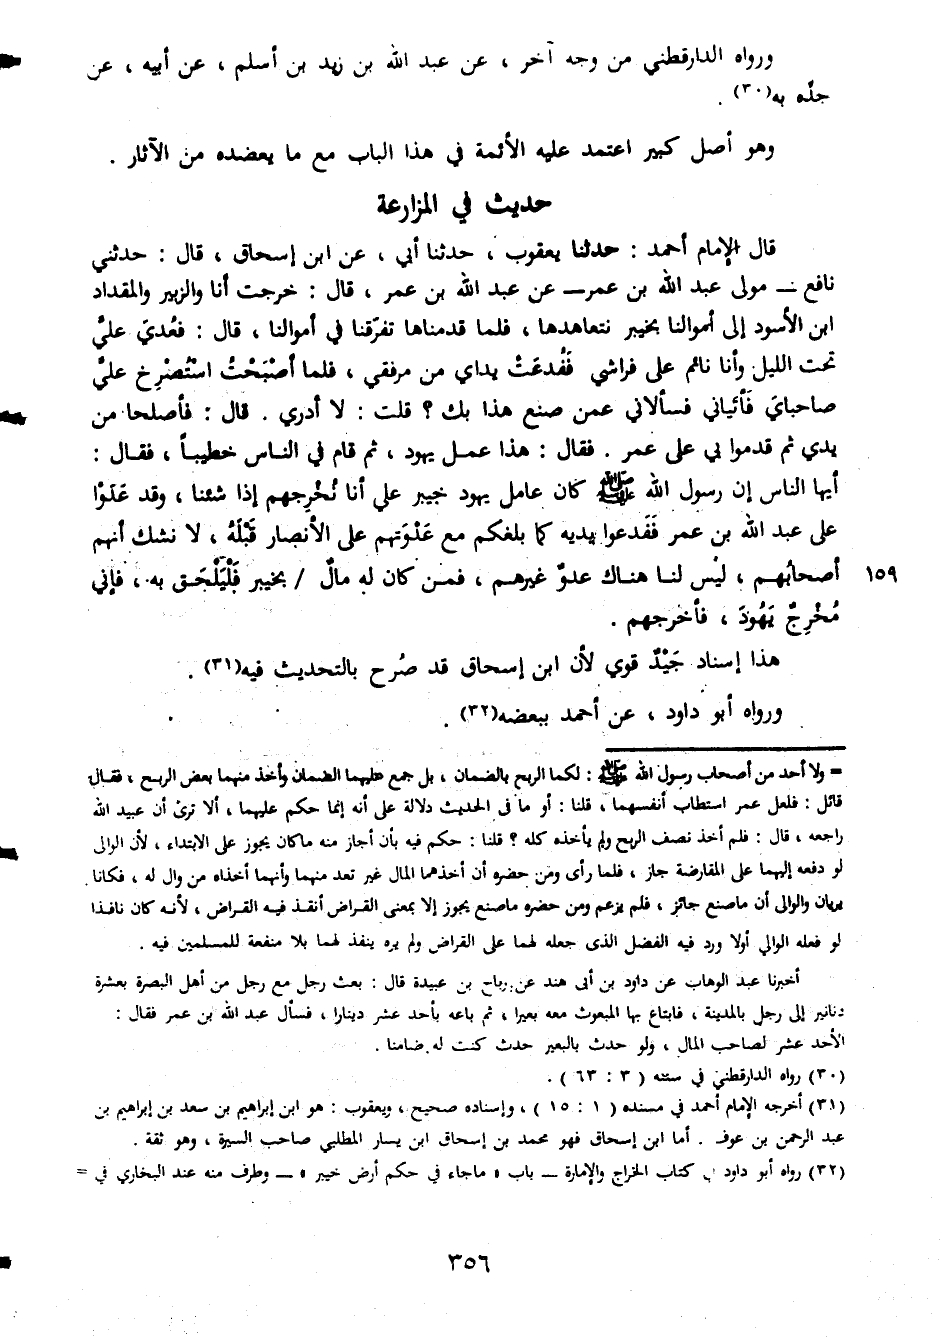 ورواه الدارقطني من وجه آخر ، عن عبد الله بن زيد بن أسلم ، عن أبيه ، عن
جدّه به(٣٠) .
وهو أصل كبير اعتمد عليه الأئمة في هذا الباب مع ما يعضده من الآثار .
حديث في المزارعة
قال الإمام أحمد : حدثنا يعقوب ، حدثنا أبي ، عن ابن إسحاق ، قال : حدثني
نافع ــ مولى عبد الله بن عمر ــ عن عبد الله بن عمر ، قال : خرجت أنا والزبير والمقداد
ابن الأسود إلى أموالنا بخيبر نتعاهدها ، فلما قدمناها تفرّقنا في أموالنا ، قال : فعُديَ عليَّ
تحت الليل وأنا نائم على فراشي فَفُدعَتْ يداي من مرفقي ، فلما أصْبَحْتُ استُصْرِخ عليَّ
صاحبايَ فَأتياني فسألاني عمن صنع هذا بك ؟ قلت : لا أدري . قال : فأصلحا من
يدي ثم قدموا بي على عمر . فقال : هذا عمل يهود ، ثم قام في الناس خطيباً ، فقال :
أيها الناس إن رسول الله ﷺ كان عامل يهود خيبر على أنا نُخْرِجهم إذا شئنا ، وقد عَدَوْا
على عبد الله بن عمر فَفَدعوا يديه كما بلغكم مع عَدْوَتهم على الأنصار قَبْلَهُ ، لا نشك أنهم
أصحابُهم ، ليْس لنا هناك عدوٌ غيرهم ، فمن كان له مالٌ / بخيبر فَلْيَلْحَق به ، فإني ١٥٩
مُخْرِجٌ يَهُودَ ، فأخرجهم .
هذا إسناد جَيْدٌ قوي لأن ابن إسحاق قد صُرح بالتحديث فيه(٣١) .
ورواه أبو داود ، عن أحمد ببعضه(٣٢) .
= ولا أحد من أصحاب رسول الله ﷺ : لكما الربح بالضمان ، بل جمع عليهما الضمان وأخذ منهما بعض الربح ، فقال
قائل : فلعل عمر استطاب أنفسهما ، قلنا : أو ما فى الحديث دلالة على أنه إنما حكم عليهما ، ألا ترىٰ أن عبيد الله
راجعه ، قال : فلم أخذ نصف الربح ولم يأخذه كله ؟ قلنا : حكم فيه بأن أجاز منه ماكان يجوز على الابتداء ، لأن الوالى
لو دفعه إليهما على المقارضة جاز ، فلما رأى ومن حضره أن أخذهما المال غير تعد منهما وأنهما أخذاه من وال له ، فكانا
يريان والوالى أن ماصنع جائز ، فلم يزعم ومن حضره ماصنع يجوز إلا بمعنى القراض أنفذ فيه القراض ، لأنه كان نافذا
لو فعله الوالي أولا ورد فيه الفضل الذى جعله لهما على القراض ولم يره ينفذ لهما بلا منفعة للمسلمين فيه .
أخبرنا عبد الوهاب عن داود بن أبى هند عن رباح بن عبيدة قال : بعث رجل مع رجل من أهل البصرة بعشرة
دنانير إلى رجل بالمدينة ، فابتاع بها المبعوث معه بعيرا ، ثم باعه بأحد عشر دينارا ، فسأل عبد الله بن عمر فقال :
الأحد عشر لصاحب المال ، ولو حدث بالبعير حدث كنت له ضامنا .
(٣٠) رواه الدارقطني في سننه ( ٣ : ٦٣ ) .
(٣١) أخرجه الإمام أحمد في مسنده ( ١ : ١٥ ) ، وإسناده صحيح ، ويعقوب : هو ابن إبراهيم بن سعد بن إبراهيم بن
عبد الرحمن بن عوف . أما ابن إسحاق فهو محمد بن إسحاق ابن يسار المطلبي صاحب السيرة ، وهو ثقة .
(٣٢) رواه أبو داود في كتاب الخراج والإمارة ــ باب « ماجاء في حكم أرض خيبر » ــ وطرف منه عند البخاري في =
٣٥٦